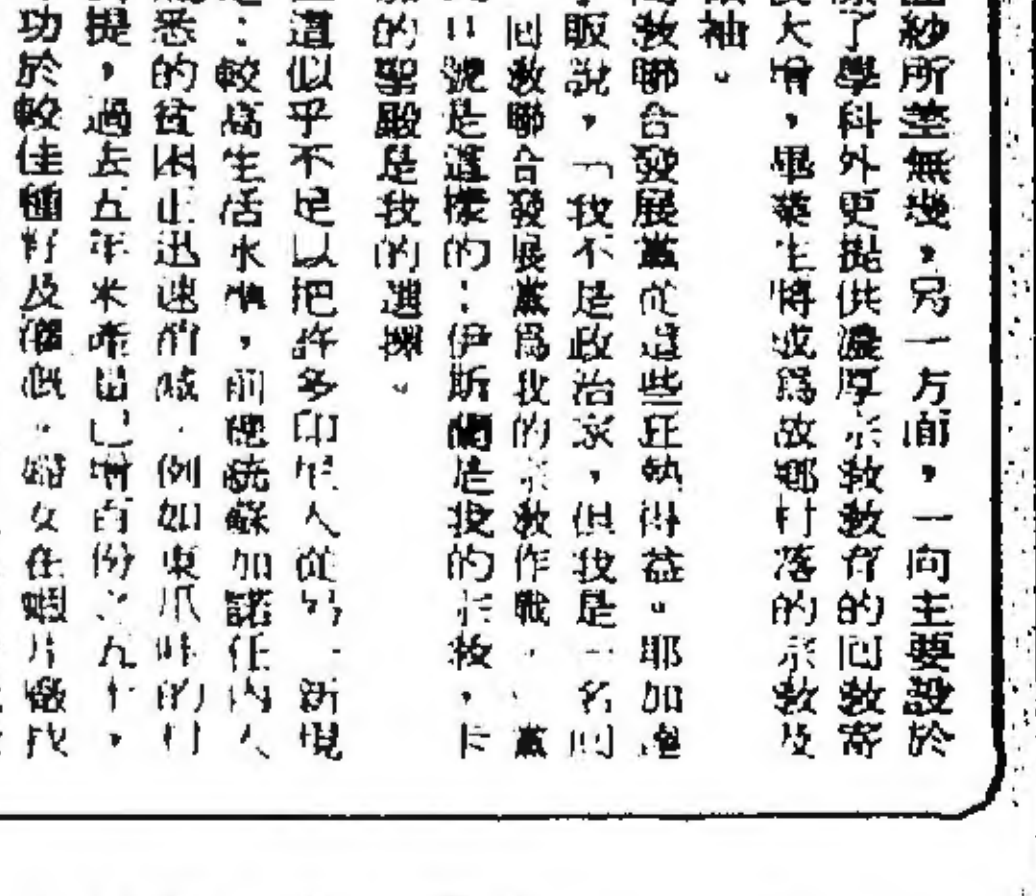 紗所差無幾，另一方面，一向主要設於
了學科外更提供濃厚宗教教育的回教寄
大增，畢業生將成爲故鄉村落的宗教及
袖。
教聯合發展黨從這些狂熱得益。耶加達
販說，「我不是政治家，但我是一名回
回教聯合發展黨爲我的宗教作戰。」黨
口號是這樣的：伊斯蘭是我的宗教，卡
的聖殿是我的選擇。
這似乎不足以把許多印尼人從另一新現
：較高生活水準，前總統蘇加諾任內人
悉的貧困正迅速消滅．例如東爪哇的村
提，過去五年米產出已增百份之九十，
功於較佳種籽及灌溉．婦女在蝦片廠找